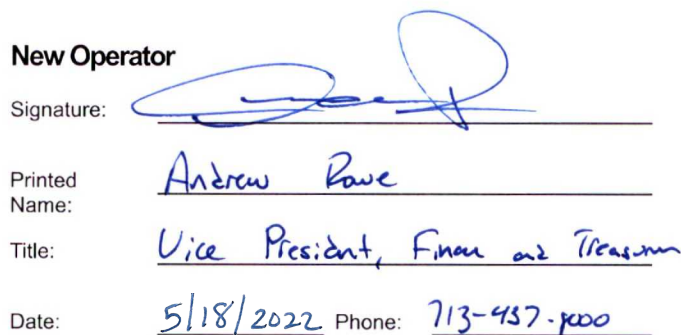 New Operator
Signature:
Printed Andrew Rowe
Name:
Title: Vice President, Finan and Treasurer
Date: 5/18/2022 Phone: 713-437-8000